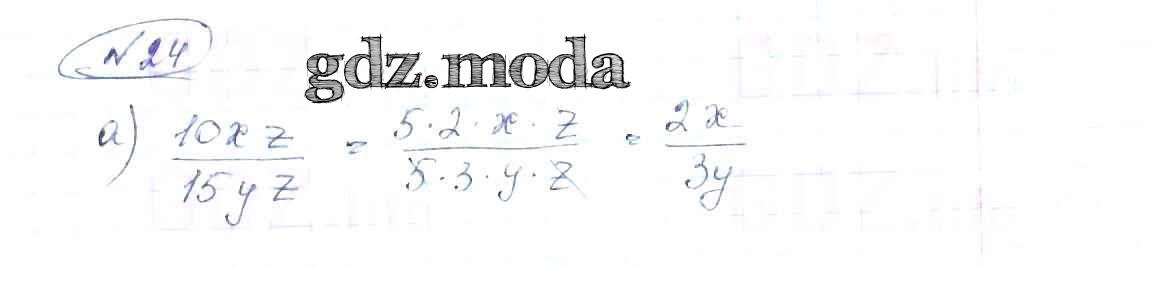 №24
gdz.moda
а) 10xz / 15yz = 5·2·x·z / 5·3·y·z = 2x / 3y